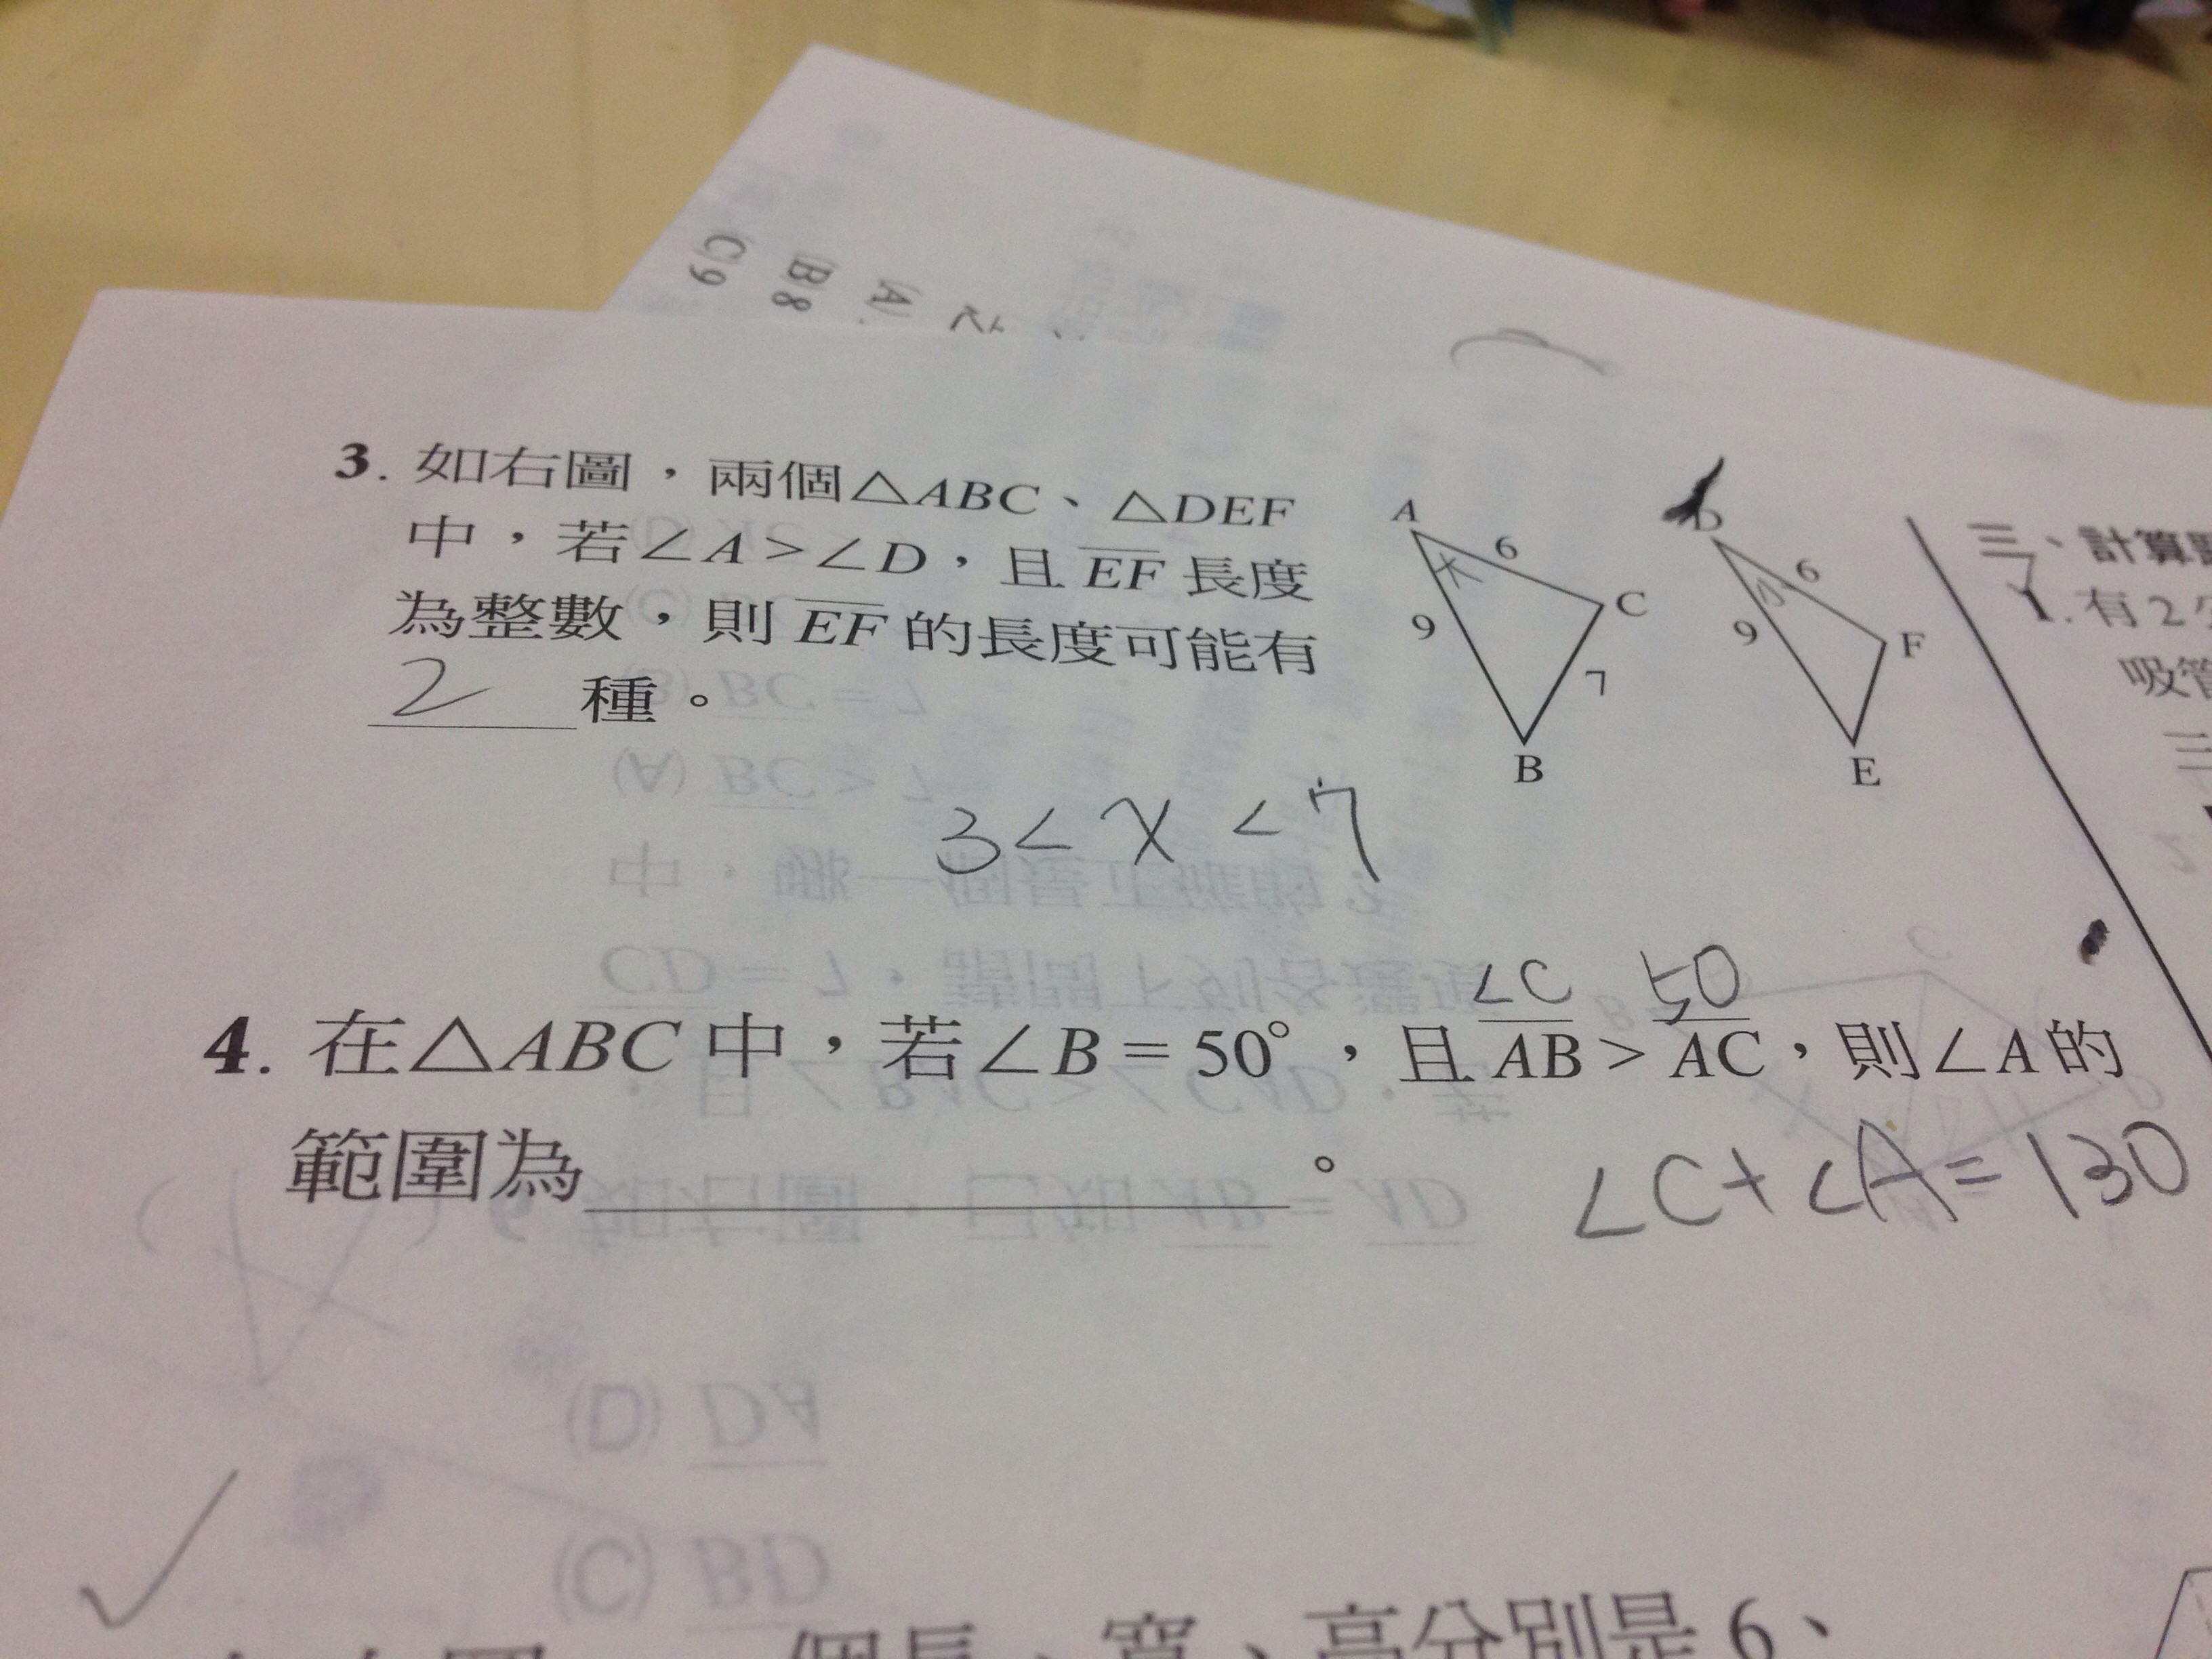 C9
B8
(A)
3. 如右圖，兩個△ABC、△DEF
中，若∠A>∠D，且EF長度
為整數，則EF的長度可能有
2 種。
A
6
C
9
7
B
D
6
F
9
E
3<x<7
三、計算
1. 有2
吸管
∠C 50
4. 在△ABC中，若∠B=50°，且AB>AC，則∠A的
範圍為 。
∠C+∠A=130
個長、寬、高分別是6、